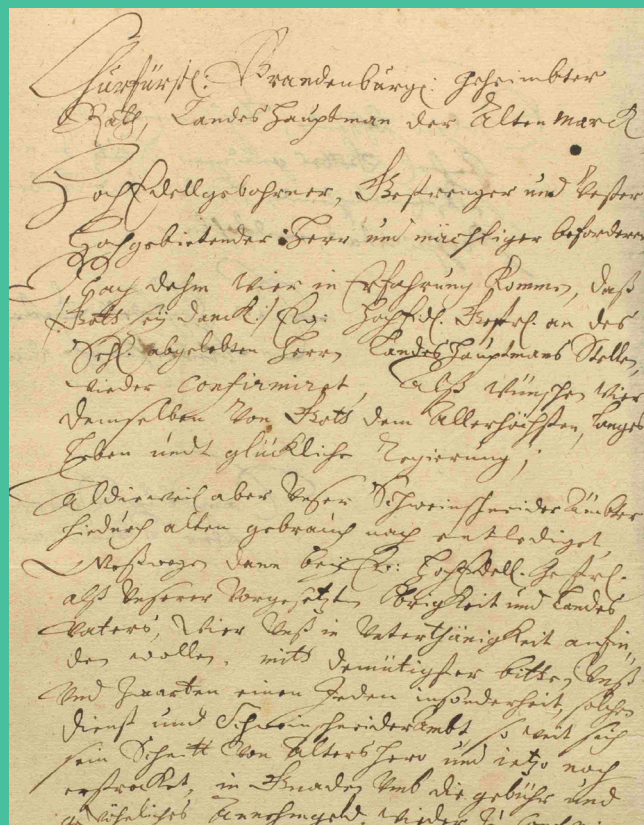 Churfürstl: Brandenburg: geheimbter
Rath, Landeshauptman der Alten Marck
HochEdellgebohrner, Gestrenger und Vester
Hochgebietender Herr und mächtiger beforderer
Nach dehm Wier in Erfahrung Kommen, daß
/: Gott sey danck :/ Ew: HochEdl. Gestrl. an des
Sehl. abgelebten Herrn Landeshauptmans Stelle,
wieder confirmiret, Alß wünschen Wier
demselben Von Gott dem Allerhöchsten, langes
Leben undt glückliche Regierung;
Aldieweil aber Unser Schweinschneider Ämbter
hiedurch alten gebrauch nach entlediget
Weßwegen dann bey Ew: HochEdell. Gestrl.
alß Unserer Vorgesetzten Obrigkeit und Landes
Vaters, Wier Unß in Unterthänigkeit anfin
den wollen, mitt demütigster bitte, Unß
Und zwarten einen Jeden insonderheit, solchen
dienst und Schweinschneiderambt so weit sich
sein Schnitt Von Alters hero und ietzo noch
erstrecket, in Gnaden Umb die gebühr und
gewöhnliches Annehmgeld, wieder zu